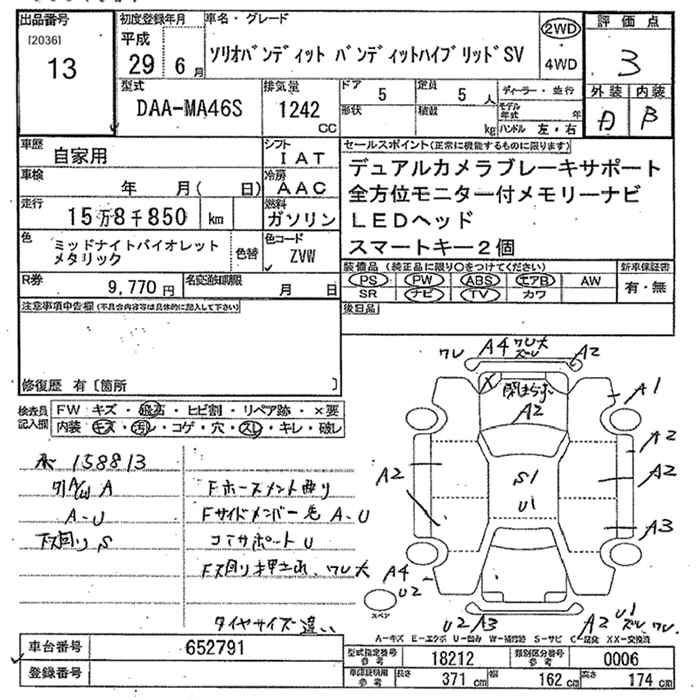 出品番号
[2036]
13
初度登録年月
平成
29年 6月
車名・グレード
ソリオバンディット バンディットハイブリッドSV
2WD
4WD
評価点
3
外装 内装
B
型式
DAA-MA46S
排気量
1242
CC
ドア 5
形状
定員 5 人
積載 kg
ディーラー・並行
モデル年式 年
ハンドル 左・右
車歴
自家用
シフト
IAT
車検
年 月( 日)
冷房
AAC
走行
15万8千850 km
燃料
ガソリン
色
ミッドナイトバイオレット
メタリック
色替
色コード
ZVW
R券
9,770円
名変通知期限
月 日
セールスポイント(正常に機能するものに限ります)
デュアルカメラブレーキサポート
全方位モニター付メモリーナビ
LEDヘッド
スマートキー2個
装備品 (純正品に限り○をつけてください)
新車保証書
PS PW ABS エアB AW
SR ナビ TV カワ
有・無
後日品
注意事項申告欄(不具合内容等は具体的に記入して下さい)
修復歴 有〔箇所 〕
検査員記入欄
FW キズ・飛石・ヒビ割・リペア跡・×要
内装 キズ・汚レ・コゲ・穴・スレ・キレ・破レ
158813
A
A-U
下廻り S
Fホースメント曲り
Fサイドメンバー先 A-U
コアサポート U
F下廻り押上れ、ワレ大
タイヤサイズ違い
ワレ
A4 ワレ大
ズレ
A2
A1
A2
A2
A2
A2
S1
U1
A3
A4
U2
スペア
U2
A2
U1
ズレ ワレ
A-キズ E-エクボ U-凹み W-補修跡 S-サビ C-腐食 XX-交換済
車台番号
652791
登録番号
型式指定番号 参考
18212
類別区分番号 参考
0006
車車証採用 参考
長さ 371 cm
幅 162 cm
高さ 174 cm